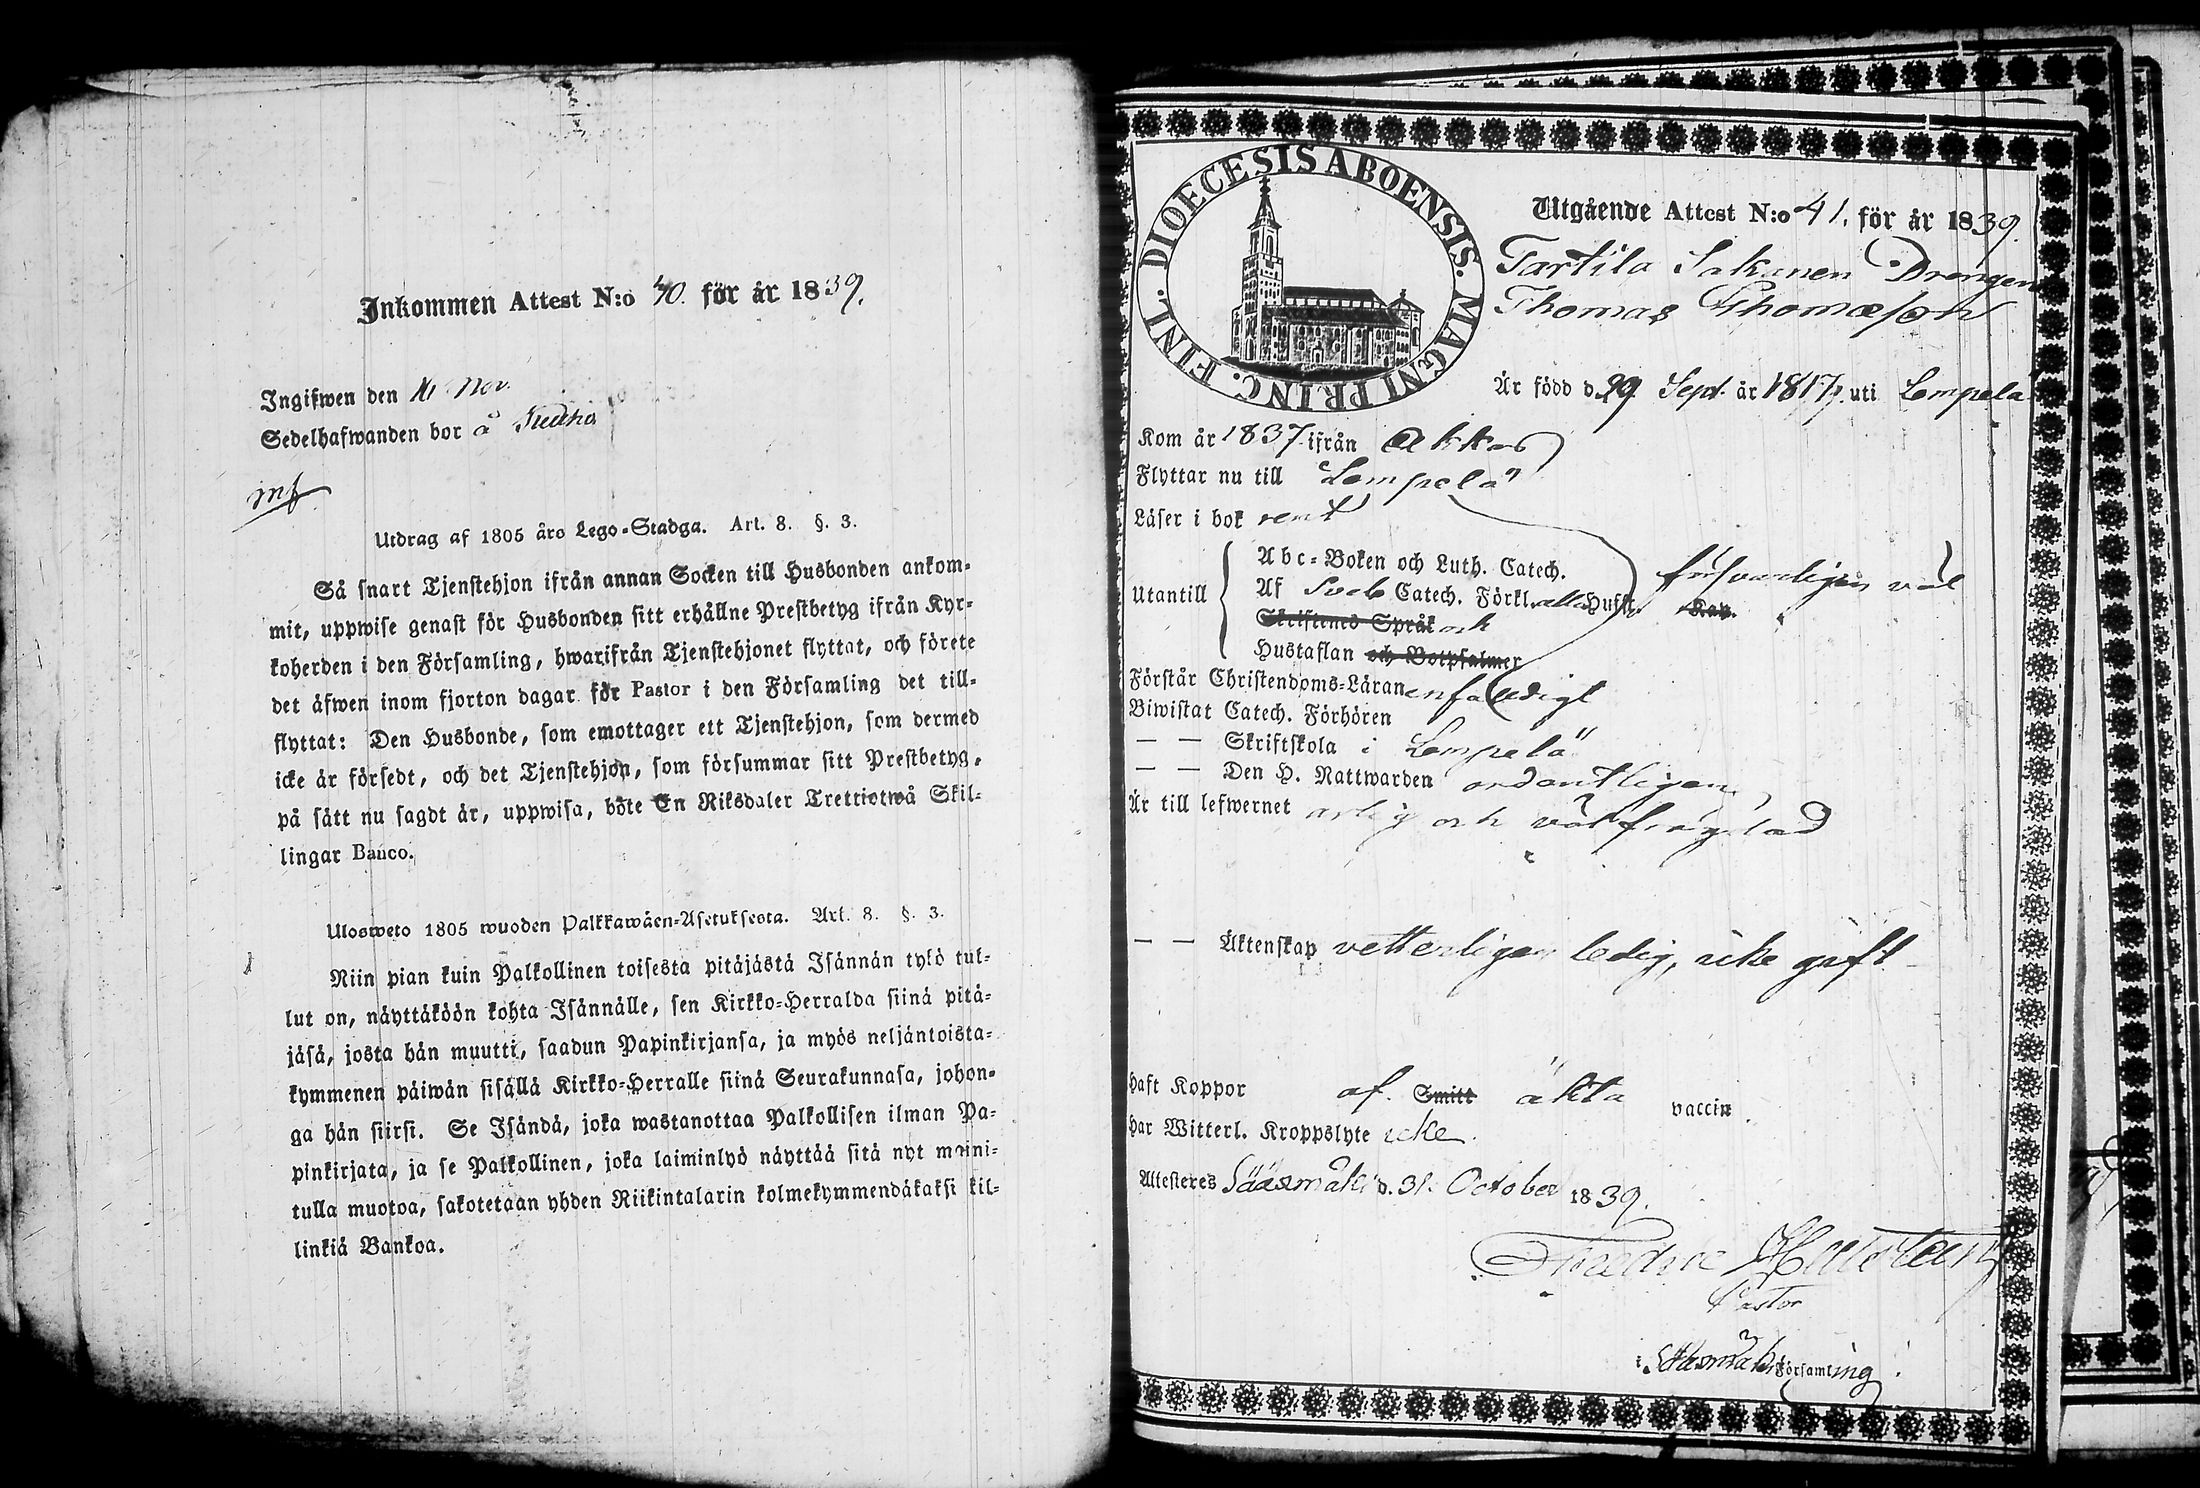 Inkommen Attest N:o 40. för år 1839.
Ingifwen den 16 Nov.
Sedelhafwanden bor å
Utdrag af 1805 års Lego-Stadga. Art. 8. §. 3.
Så snart Tjenstehjon ifrån annan Socken till Husbonden ankom-
mit, uppwise genast för Husbonden sitt erhållne Prestbetyg ifrån Kyr-
koherden i den Församling, hwarifrån Tjenstehjonet flyttat, och förete
det äfwen inom fjorton dagar för Pastor i den Församling det till-
flyttat: Den Husbonde, som emottager ett Tjenstehjon, som dermed
icke är försedt, och det Tjenstehjon, som försummar sitt Prestbetyg,
på sätt nu sagdt är, uppwisa, böte En Riksdaler Trettiotwå Skil-
lingar Banco.
Ulosweto 1805 wuoden Palkkawäen-Asetuksesta. Art. 8. §. 3.
Niin pian kuin Palkollinen toisesta pitäjästä Isännän tykö tul-
lut on, näyttäköön kohta Isännälle, sen Kirkko-Herralda siinä pitä-
jäsä, josta hän muutti, saadun Papinkirjansa, ja myös neljäntoista-
kymmenen päiwän sisällä Kirkko-Herralle siinä Seurakunnasa, johon-
ga hän siirsi. Se Isändä, joka wastanottaa Palkollisen ilman Pa-
pinkirjata, ja se Palkollinen, joka laiminlyö näyttää sitä nyt maini-
tulla muotoa, sakotetaan yhden Riikintalarin kolmekymmendäkaksi kil-
linkiä Bankoa.
DIOECESIS ABOENSIS. MAGNI PRINC. FINL.
Utgående Attest N:o 41. för år 1839.
Tartila Sakanen Drengen
Thomas Thomasson
Är född d. 29 Sept. år 1817 uti Lempelä
Kom år 1837 ifrån Akkas
Flyttar nu till Lempelä
Läser i bok rent
Utantill
Abc-Boken och Luth. Catech.
Af Sveb Catech. Förkl. alla Hufst. Kap. försvarligen väl
Skriftenes Språk och
Hustaflan och Botpsalmer
Förstår Christendoms-Läran enfaldigt
Biwistat Catech. Förhören
— — Skriftskola i Lempelä
— — Den H. Nattwarden ordentligen
Är till lefwernet ärlig och välfrägdad
— — Äktenskap vetterligen ledig, icke gift
Haft Koppor af Smitt äkta vaccin.
Har Witterl. Kroppslyte icke.
Attesteres Sääxmäki d. 31 October 1839.
Pastor
i Sääxmäki Församling.